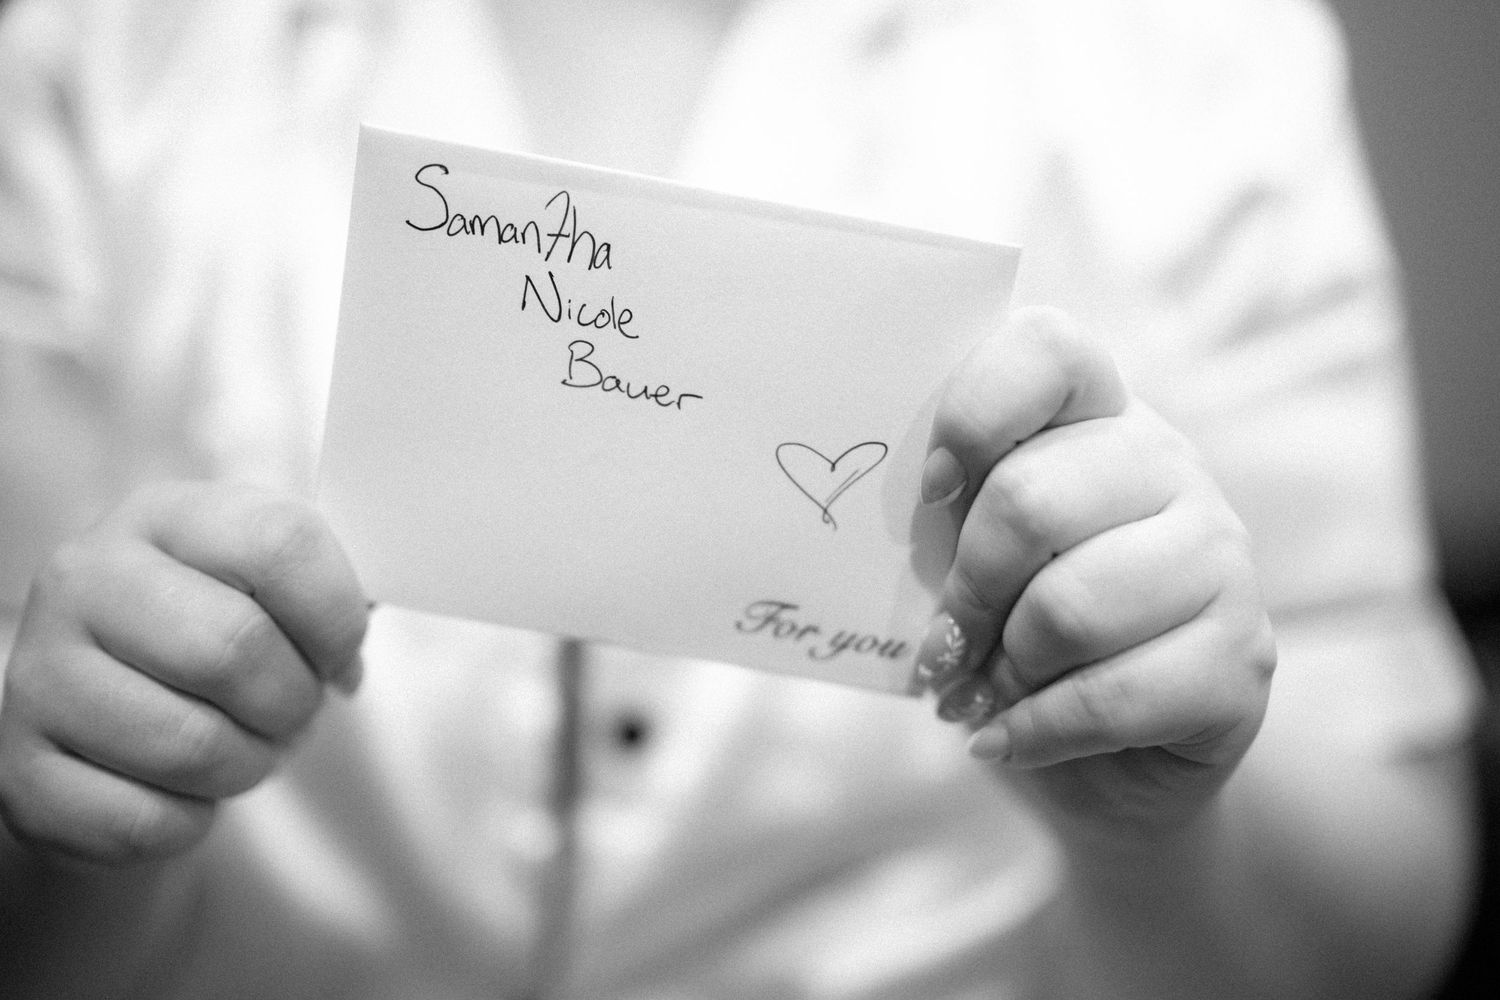 Samantha
Nicole
Bauer
For you